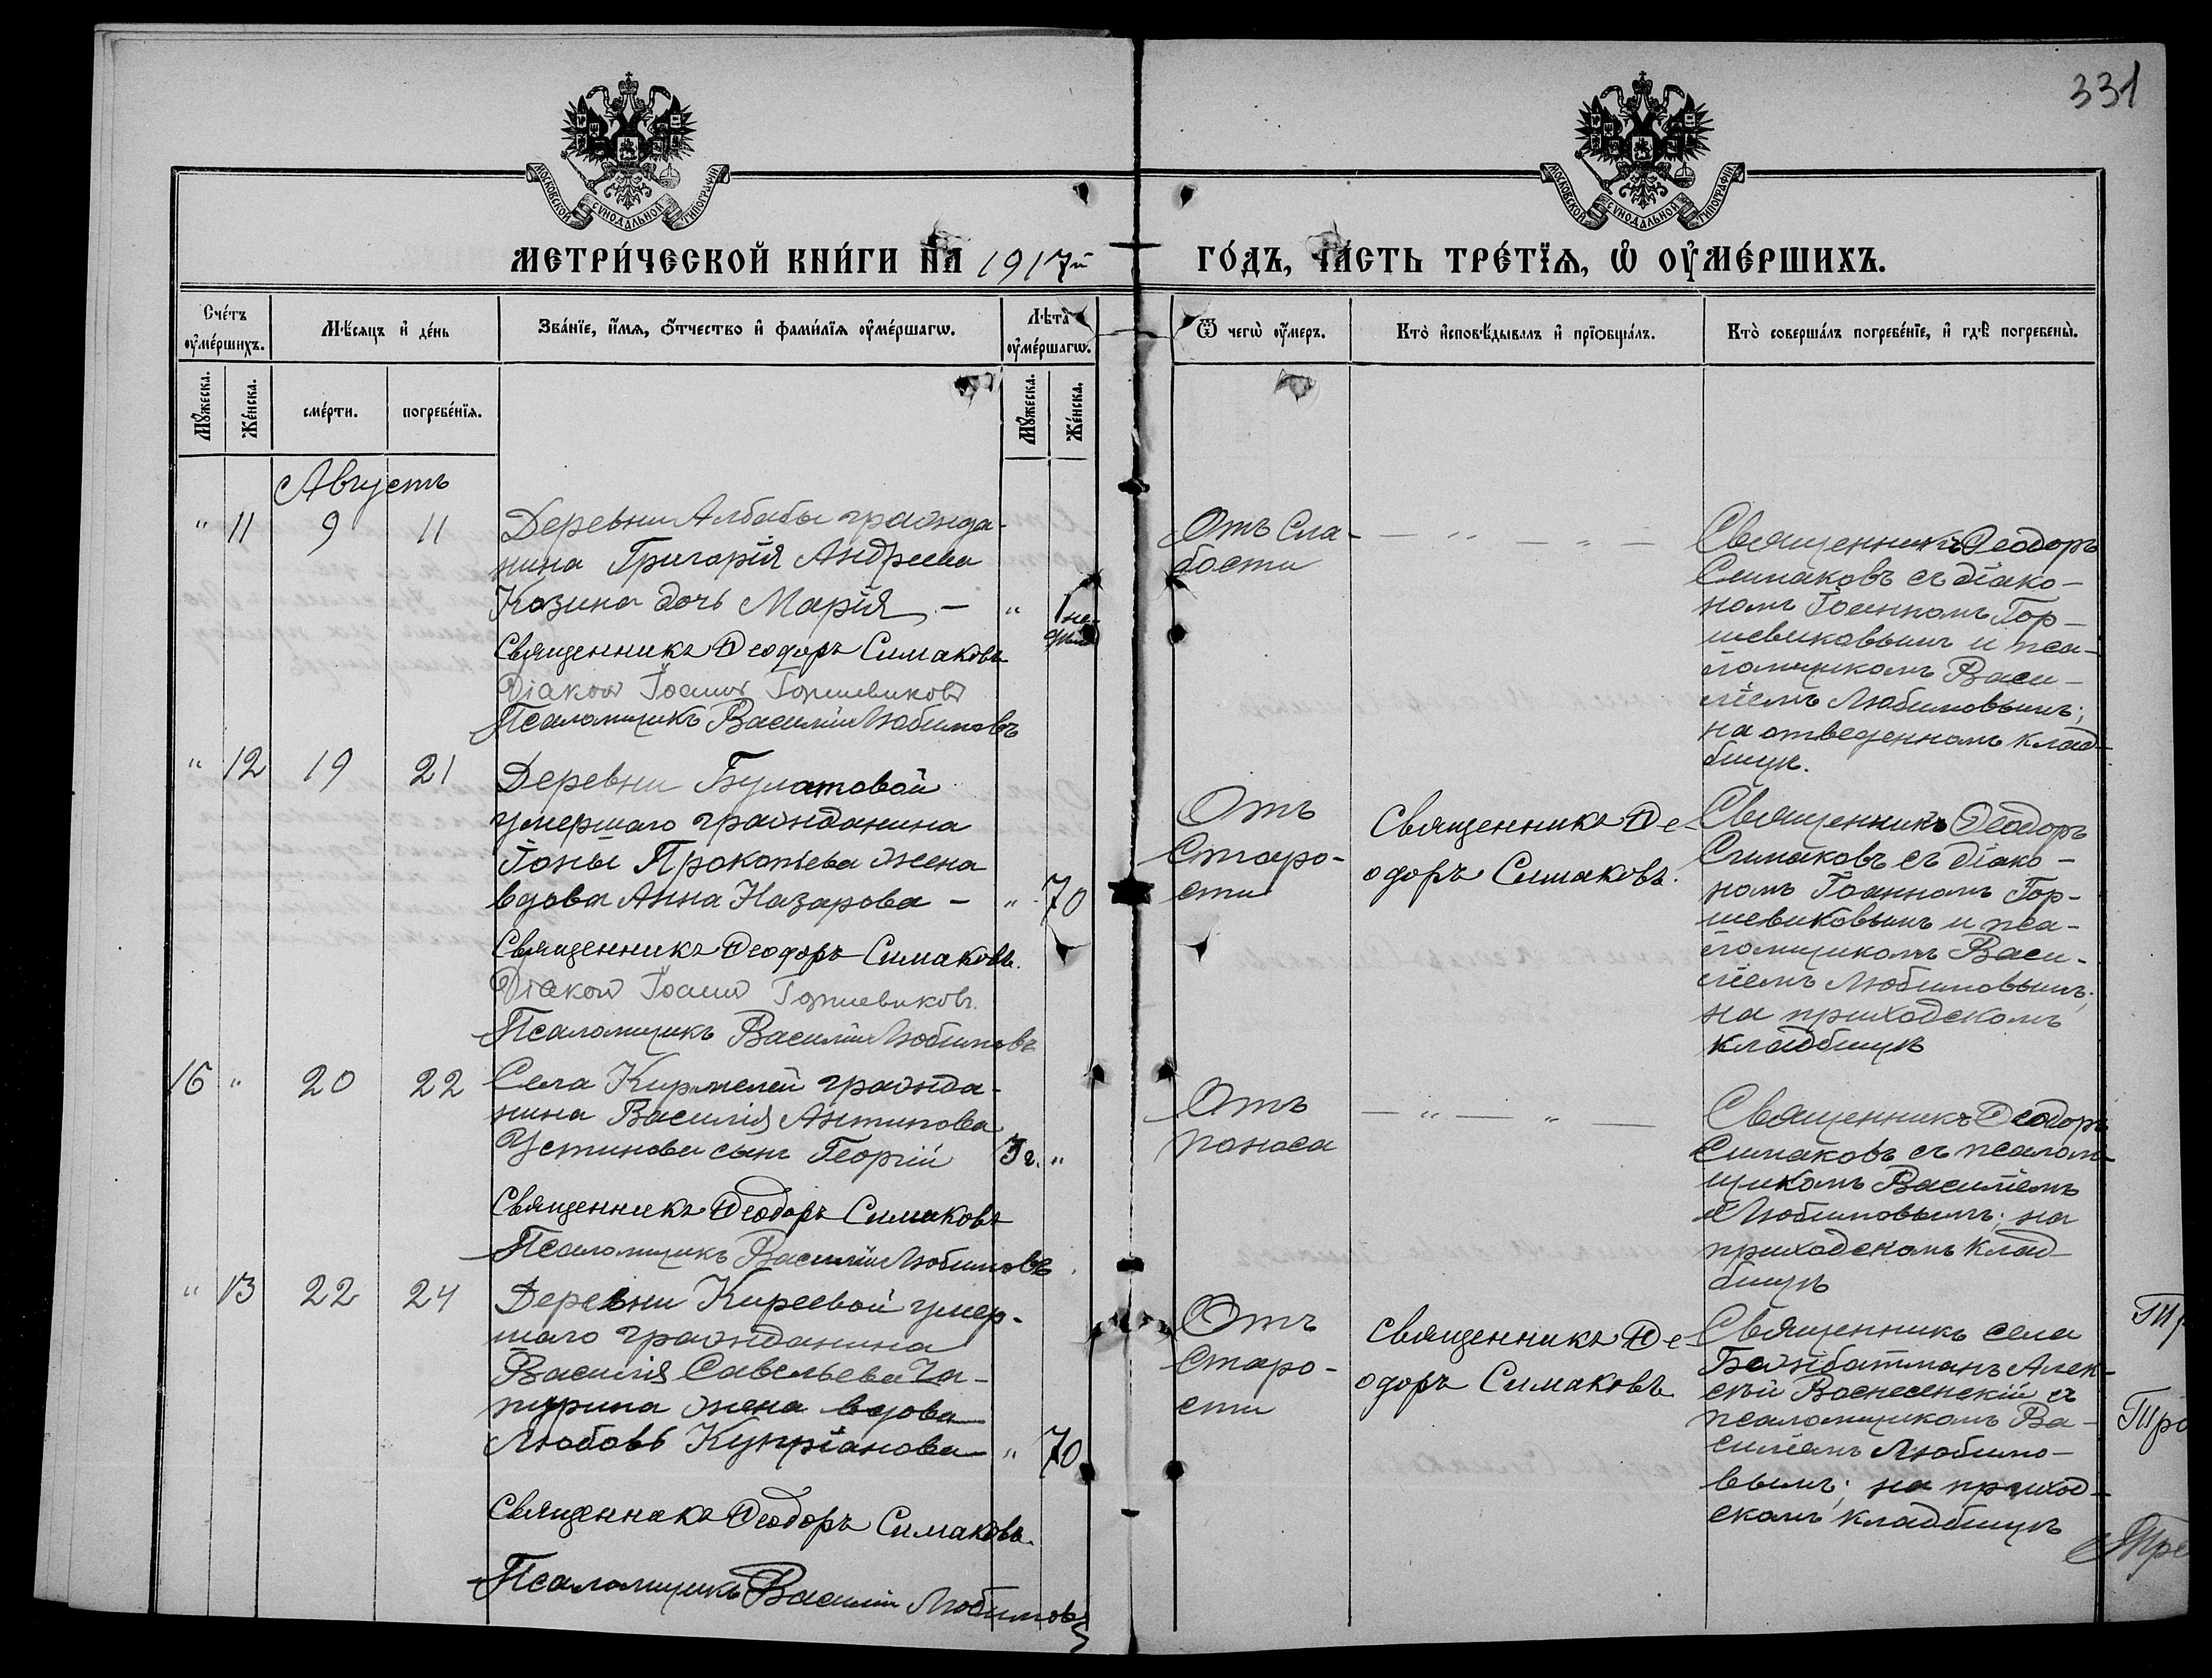 331
МОСКОВСКОЙ СУНОДАЛЬНОЙ ТИПОГРАФІИ
МОСКОВСКОЙ СУНОДАЛЬНОЙ ТИПОГРАФІИ
МЕТРИ́ЧЕСКОЙ КНИ́ГИ НА 1917й
ГО́ДЪ, ЧА́СТЬ ТРЕ́ТЇѦ, Ѽ ОУ҆МЕ́РШИХЪ.
Сче́тъ оу҆ме́ршихъ.
Мѣ́сяцъ и҆ де́нь
Зва́нїе, и҆́мѧ, ѻ҆́тчество и҆ фами́лїѧ оу҆ме́ршагѡ.
Лѣ́та оу҆ме́ршагѡ.
Ѿ чегѡ̀ оу҆́меръ.
Кто̀ и҆сповѣ́дывалъ и҆ прїѡбща́лъ.
Кто̀ соверша́лъ погребе́нїе, и҆ гдѣ̀ погребены̀.
Мꙋ́жеска.
Же́нска.
сме́рти.
погребе́нїѧ.
Мꙋ́жеска.
Же́нска.
Августъ
" 11 9 11
Деревни Албабы гражда-
нина Григорія Андреева
Козина дочь Марія — " 1 не-
Священникъ Ѳеодоръ Симаковъ
Діаконъ Іоаннъ Горшевиковъ
Псаломщикъ Василій Любимовъ
Отъ Сла-
бости
— " — " —
Священникъ Ѳеодоръ
Симаковъ съ діако-
номъ Іоанномъ Гор-
шевиковымъ и пса-
ломщикомъ Васи-
ліемъ Любимовымъ;
на отведенномъ клад-
бищѣ.
" 12 19 21
Деревни Булатовой
умершаго гражданина
Іоны Прокопьева жена
вдова Анна Назарова — " 70
Священникъ Ѳеодоръ Симаковъ.
Діаконъ Іоаннъ Горшевиковъ.
Псаломщикъ Василій Любимовъ
Отъ
Старо-
сти
Священникъ Ѳе-
одоръ Симаковъ.
Священникъ Ѳеодоръ
Симаковъ съ діако-
номъ Іоанномъ Гор-
шевиковымъ и пса-
ломщикомъ Васи-
ліемъ Любимовымъ;
на приходскомъ
кладбищѣ
16 " 20 22
Села Кирмелей гражда-
нина Василія Антипова
Устинова сынъ Георгій г. "
Священникъ Ѳеодоръ Симаковъ
Псаломщикъ Василій Любимовъ
Отъ
поноса
— " — " —
Священникъ Ѳеодоръ
Симаковъ съ псалом-
щикомъ Василіемъ
Любимовымъ; на
приходскомъ клад
бищѣ
" 13 22 24
Деревни Киреевой умер-
шаго гражданина
Василія Савельева Ча-
пурина жена вдова
Любовь Купріанова — " 70
Священникъ Ѳеодоръ Симаковъ.
Псаломщикъ Василій Любимовъ
Отъ
Старо-
сти
Священникъ Ѳе-
одоръ Симаковъ
Священникъ села
Бажбатманъ Алек-
сѣй Вознесенскій съ
псаломщикомъ Ва-
силіемъ Любимо-
вымъ; на приход-
скомъ кладбищѣ